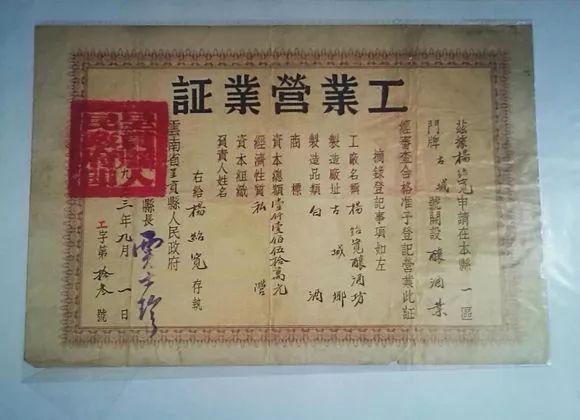 工業營業証
茲據楊紹寬申請在本縣一區
門牌古城號開設釀酒業
經審查合格准予登記營業此証
摘錄登記事項如左
工廠名稱 楊紹寬釀酒坊
製造廠址 古城鄉
製造品類 白酒
商標
資本總額 壹仟壹佰伍拾萬元
經濟性質 私
資本組織
負責人姓名
右給楊紹寬存執
雲南省呈貢縣人民政府
縣長
三年九月一日
工字第拾叁號